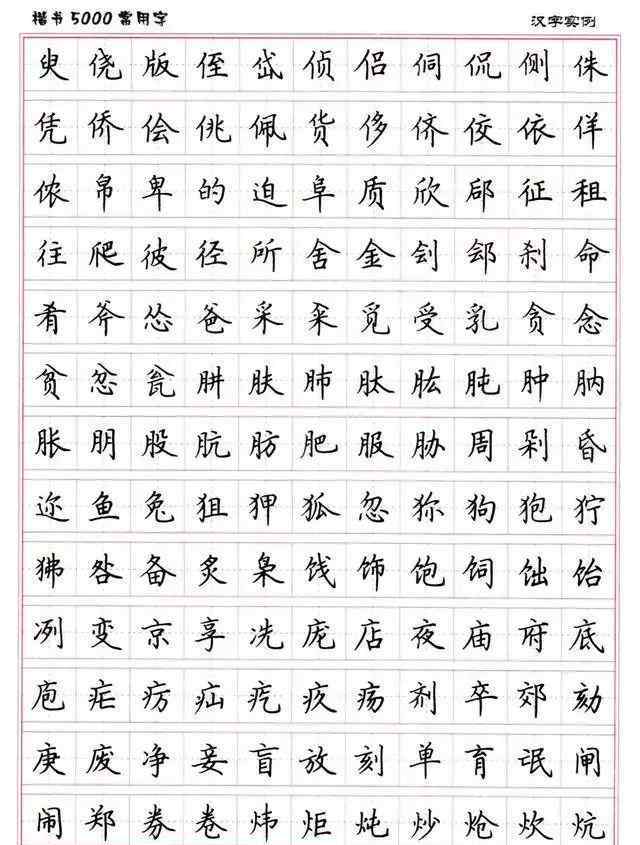 楷书5000常用字 汉字实例
臾侥版侄岱侦侣侗侃侧侏
凭侨侩佻佩货侈侪佼依佯
侬帛卑的迫阜质欣郈征租
往爬彼径所舍金刽郐刹命
肴斧怂爸采采觅受乳贪念
贫忿瓮肼肤肺肽肱肫肿肭
胀朋股肮肪肥服胁周剁昏
迩鱼兔狙狎狐忽狝狗狍狞
狒咎备炙枭饯饰饱饲饳饴
冽变京享冼庞店夜庙府底
庖疟疠疝疙疚疡剂卒郊劾
庚废净妾盲放刻单育氓闸
闹郑券卷炜炬炖炒炝炊炕